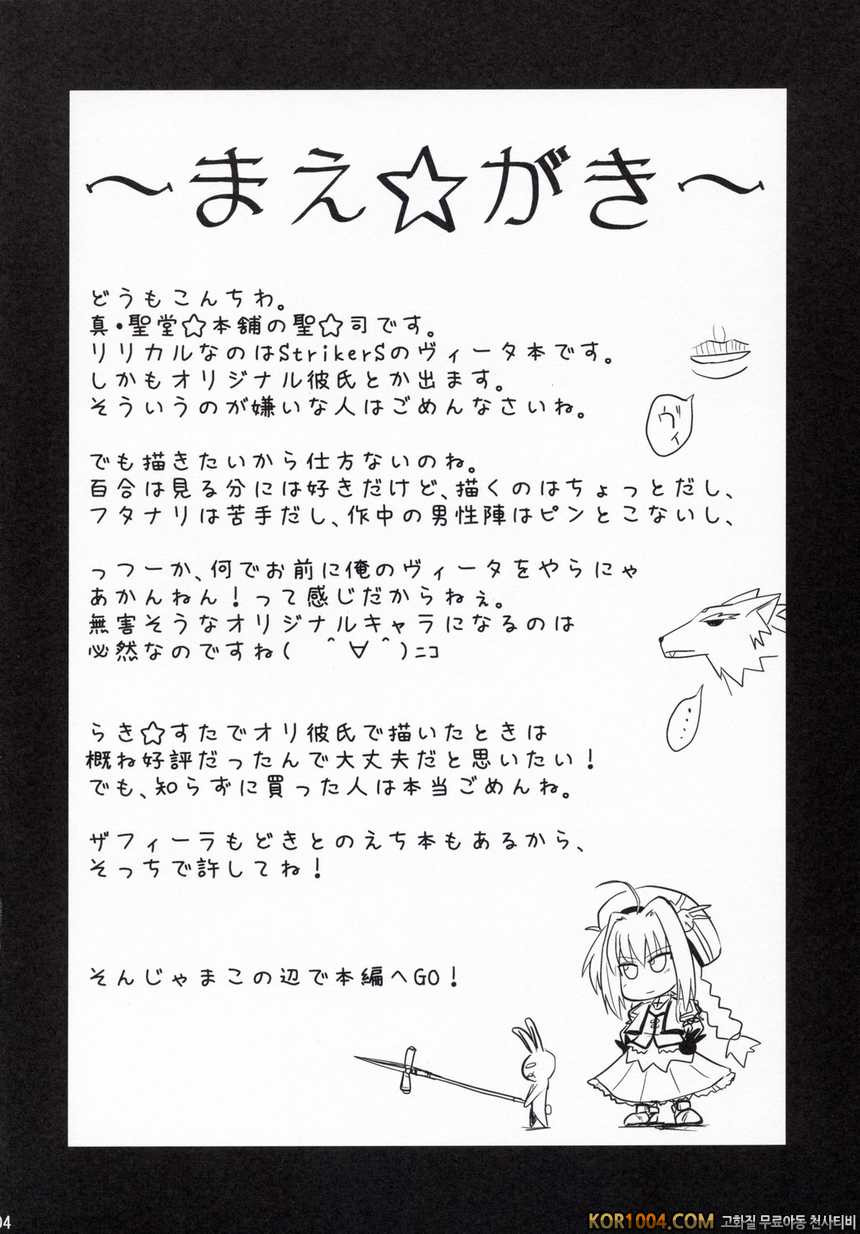 ～まえ☆がき～
どうもこんちわ。
真・聖堂☆本舗の聖☆司です。
リリカルなのはStrikerSのヴィータ本です。
しかもオリジナル彼氏とか出ます。
そういうのが嫌いな人はごめんなさいね。
ヴィ
でも描きたいから仕方ないのね。
百合は見る分には好きだけど、描くのはちょっとだし、
フタナリは苦手だし、作中の男性陣はピンとこないし、
っつーか、何でお前に俺のヴィータをやらにゃ
あかんねん！って感じだからねぇ。
無害そうなオリジナルキャラになるのは
必然なのですね( ＾∀＾)ﾆｺ
…
らき☆すたでオリ彼氏で描いたときは
概ね好評だったんで大丈夫だと思いたい！
でも、知らずに買った人は本当ごめんね。
ザフィーラもどきとのえち本もあるから、
そっちで許してね！
そんじゃまこの辺で本編へGO！
04
KOR1004.COM 고화질 무료야동 천사티비